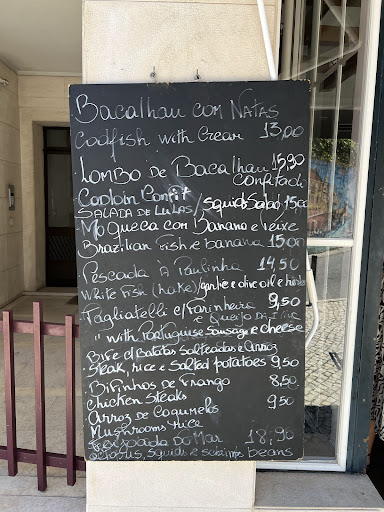 Bacalhau com Natas
codfish with Cream 13,00
Lombo de Bacalhau 15,90
Confitado
Codloin Confit
Salada de Lulas / Squids Salad 15,00
Moqueca com Banana e Peixe
Brazilian Fish e banana 15,00
Pescada à Paulinha 14,50
White Fish (hake)/garlic e olive oil e
Tagliatelli c/Farinheira 9,50
e Queijo da
"with Portuguese Sausage e cheese
Bife c/Batatas Salteadas e Arroz
Steak, rice e Salted potatoes 9,50
Bifinhos de Frango 8,50
Chicken Steaks
Arroz de Cogumelos 9,50
Mushrooms rice
Feijoada do Mar 18,90
Octopus, squids e shrimps beans